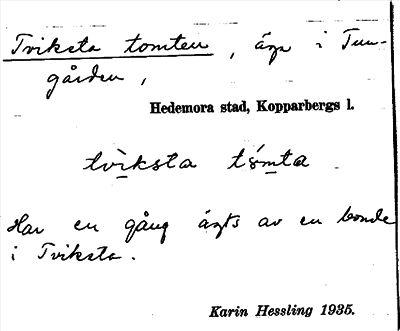 Tviksta tomten, äga i Tun-
gården,
Hedemora stad, Kopparbergs l.
tvìksta tómta
Har en gång ägts av en bonde
i Tviksta.
Karin Hessling 1935.